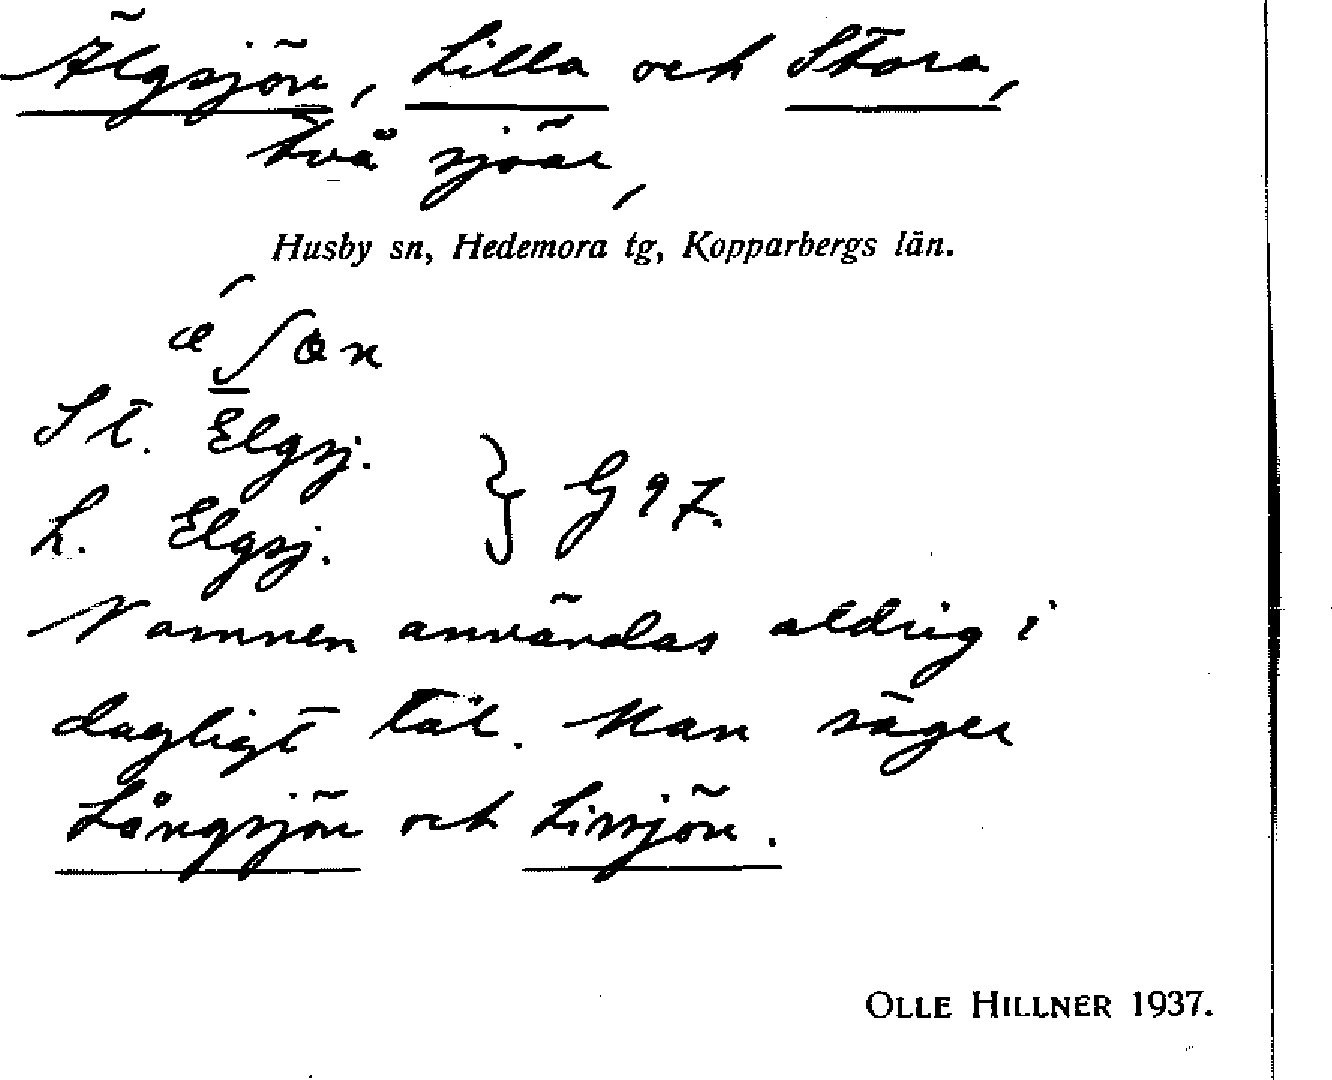 Älgsjön, Lilla och Stora,
två sjöar,
Husby sn, Hedemora tg, Kopparbergs län.
St. Elgsj.
L. Elgsj. } G 97.
Namnen användas aldrig i
dagligt tal. Man säger
Långsjön och Lissjön.
OLLE HILLNER 1937.